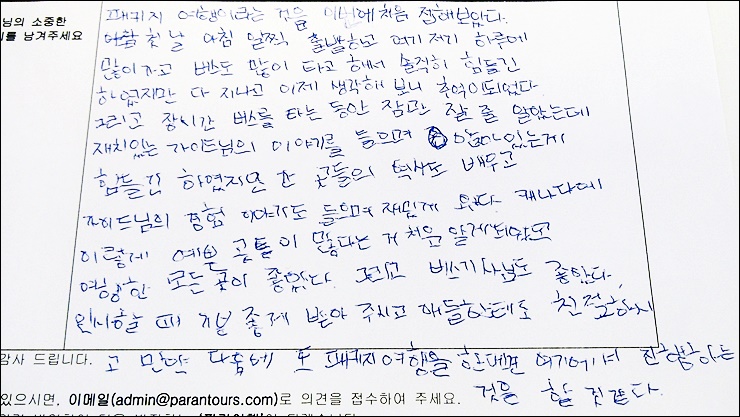 님의 소중한
를 남겨주세요
패키지 여행이라는 것을 이번에 처음 접해보았다.
첫 날 아침 일찍 출발하고 여기 저기 하루에
많이 가고 버스도 많이 타고 해서 솔직히 힘들긴
하였지만 다 지나고 이제 생각해 보니 추억이 되었다.
그리고 장시간 버스를 타는 동안 잠만 잘 줄 알았는데
재치있는 가이드님의 이야기를 들으며 앉아있는게
힘들긴 하였지만 간 곳들의 역사도 배우고
가이드님의 경험 이야기도 들으며 재밌게 왔다. 캐나다에
이렇게 예쁜 곳들이 많다는 거 처음 알게되었고
여행한 모든 곳이 좋았다. 그리고 버스기사님도 좋았다.
인사할 때 기분 좋게 받아 주시고 애들한테도 친절하시
감사 드립니다. 고 만약 다음에 또 패키지여행을 한다면 여기에서 진행하는
있으시면, 이메일(admin@parantours.com)로 의견을 접수하여 주세요. 것을 할 것같다.